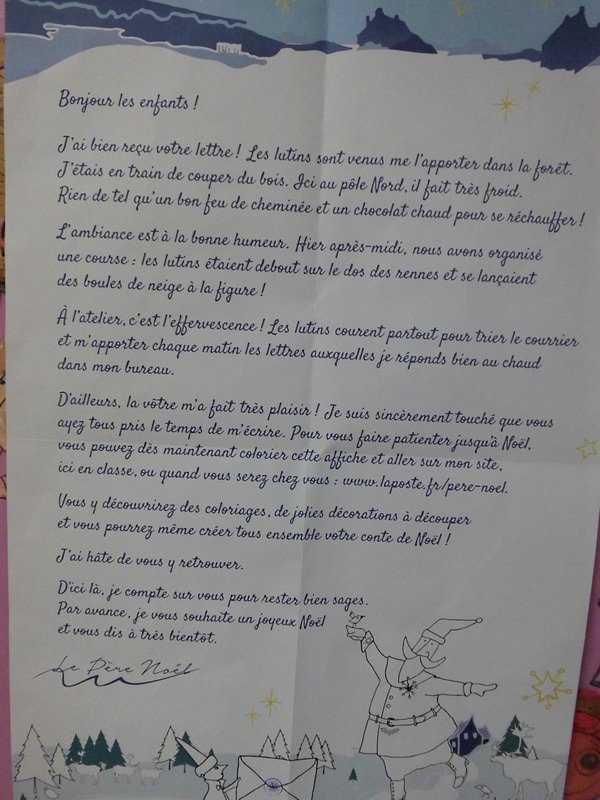 Bonjour les enfants !
J'ai bien reçu votre lettre ! Les lutins sont venus me l'apporter dans la forêt.
J'étais en train de couper du bois. Ici au pôle Nord, il fait très froid.
Rien de tel qu'un bon feu de cheminée et un chocolat chaud pour se réchauffer !
L'ambiance est à la bonne humeur. Hier après-midi, nous avons organisé
une course : les lutins étaient debout sur le dos des rennes et se lançaient
des boules de neige à la figure !
À l'atelier, c'est l'effervescence ! Les lutins courent partout pour trier le courrier
et m'apporter chaque matin les lettres auxquelles je réponds bien au chaud
dans mon bureau.
D'ailleurs, la vôtre m'a fait très plaisir ! Je suis sincèrement touché que vous
ayez tous pris le temps de m'écrire. Pour vous faire patienter jusqu'à Noël,
vous pouvez dès maintenant colorier cette affiche et aller sur mon site,
ici en classe, ou quand vous serez chez vous : www.laposte.fr/pere-noel.
Vous y découvrirez des coloriages, de jolies décorations à découper
et vous pourrez même créer tous ensemble votre conte de Noël !
J'ai hâte de vous y retrouver.
D'ici là, je compte sur vous pour rester bien sages.
Par avance, je vous souhaite un joyeux Noël
et vous dis à très bientôt.
Le Père Noël